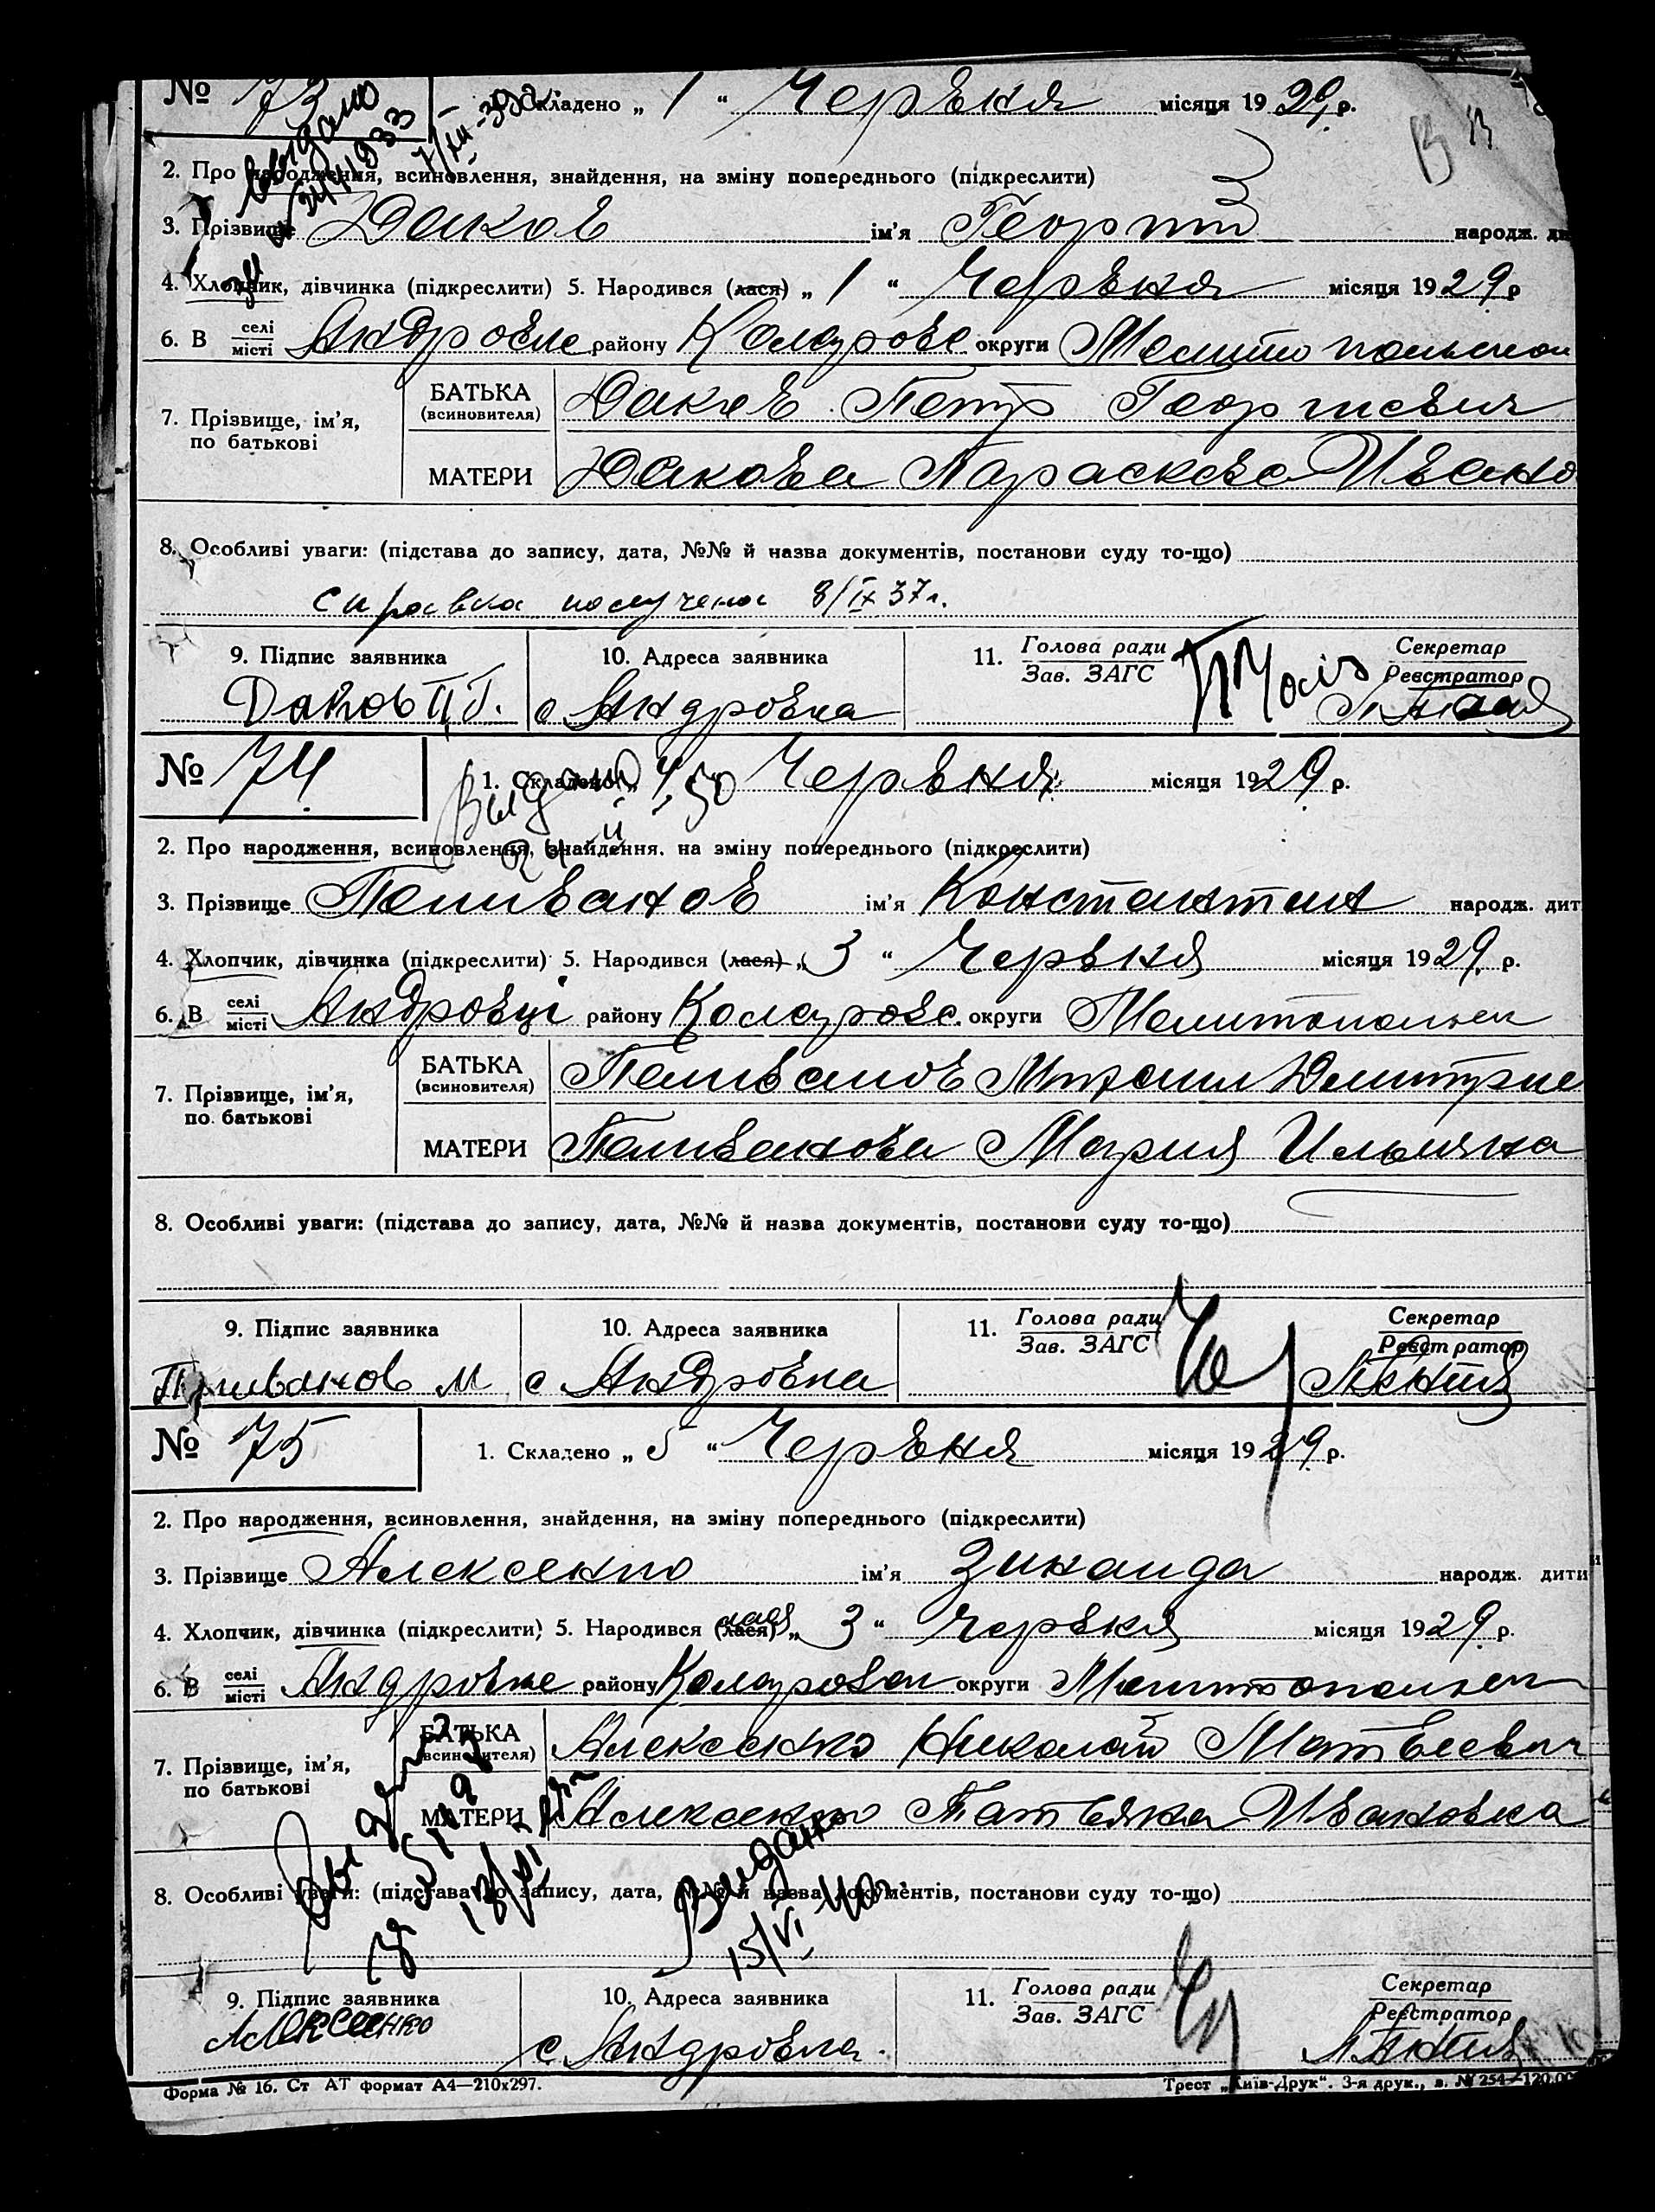 № 73 Складено „ 1 “ Червня місяця 1929 р.
13
видано
2. Про народження, всиновлення, знайдення, на зміну попереднього (підкреслити)
3. Прізвище Даков ім'я Георгий народж. ди
4. Хлопчик, дівчинка (підкреслити) 5. Народився (лася) „ 1 “ Червня місяця 1929 р
6. В селі місті Андровке району Коларовс. округи Мелитопольской
7. Прізвище, ім'я, по батькові
БАТЬКА (всиновителя) Даков Петр Георгиевич
МАТЕРИ Дакова Параскева Ивано
8. Особливі уваги: (підстава до запису, дата, №№ й назва документів, постанови суду то-що)
справка получена 8/IX 37г.
9. Підпис заявника 10. Адреса заявника 11. Голова ради Зав. ЗАГС Секретар Реєстратор
Даков П.Г. с Андровка
№ 74 1. Складено „ 4 “ Червня місяця 1929 р.
Выдано
2. Про народження, всиновлення, знайдення, на зміну попереднього (підкреслити)
3. Прізвище Поливанов ім'я Константин народж. дит
4. Хлопчик, дівчинка (підкреслити) 5. Народився (лася) „ 3 “ Червня місяця 1929 р.
6. В селі місті Андровці району Коларовс. округи Мелитопольск
7. Прізвище, ім'я, по батькові
БАТЬКА (всиновителя) Поливанов Михаил Дмитрие
МАТЕРИ Поливанова Мария Ильинна
8. Особливі уваги: (підстава до запису, дата, №№ й назва документів, постанови суду то-що)
9. Підпис заявника 10. Адреса заявника 11. Голова ради Зав. ЗАГС Секретар Реєстратор
Поливанов М с Андровка
№ 75 1. Складено „ 5 “ Червня місяця 1929 р.
2. Про народження, всиновлення, знайдення, на зміну попереднього (підкреслити)
3. Прізвище Алексеенко ім'я Зинаида народж. дити
4. Хлопчик, дівчинка (підкреслити) 5. Народився (лася) лася „ 3 “ Червня місяця 1929 р.
6. В селі місті Андровке району Коларовск округи Мелитопольск
7. Прізвище, ім'я, по батькові
БАТЬКА (всиновителя) Алексеенко Николай Матвеевич
МАТЕРИ Алексеенко Татьяна Ивановна
8. Особливі уваги: (підстава до запису, дата, №№ й назва документів, постанови суду то-що)
Выдано
15/VI 40г.
9. Підпис заявника 10. Адреса заявника 11. Голова ради Зав. ЗАГС Секретар Реєстратор
Алексеенко с. Андровка.
Форма № 16. Ст АТ формат А4—210х297. Трест „Київ-Друк“. 3-я друк., з. № 254—120.00